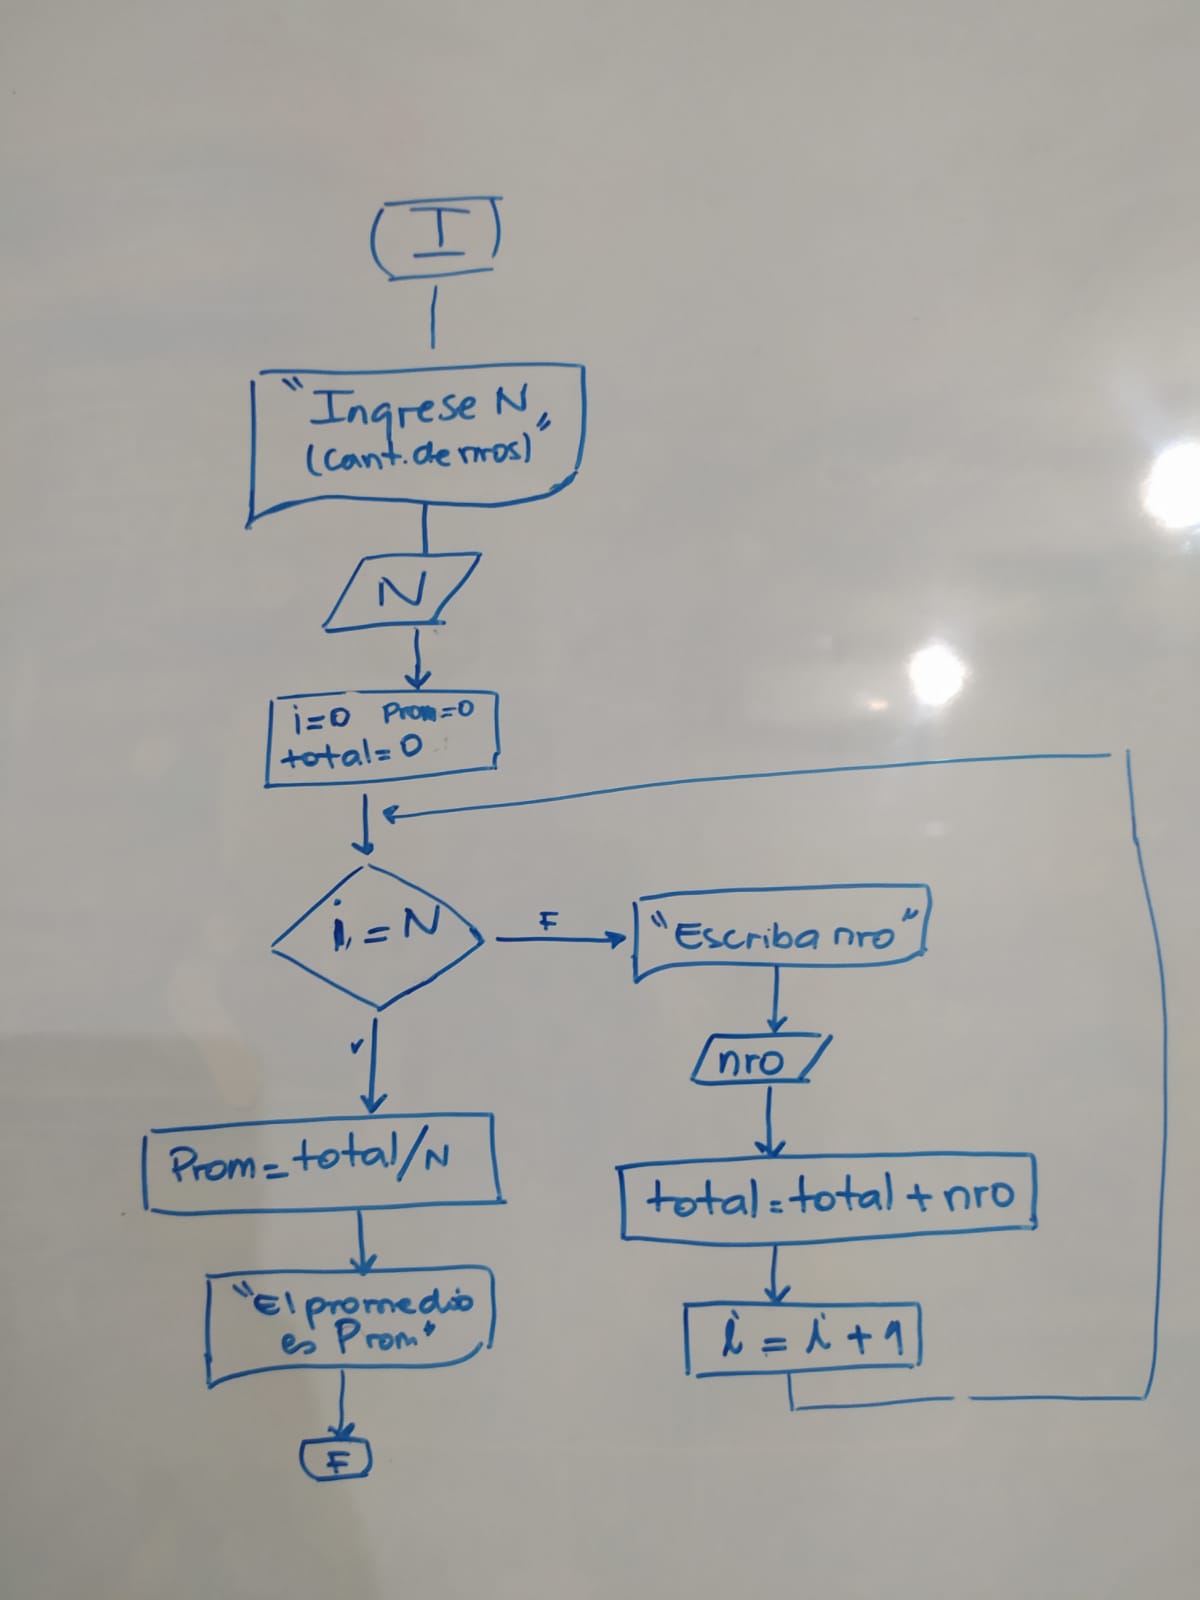 I
"Ingrese N
(cant. de nros)"
N
i=0 Prom=0
total=0
i=N
F
"Escriba nro"
nro
total=total+nro
i=i+1
v
Prom=total/N
"El promedio
es Prom"
F